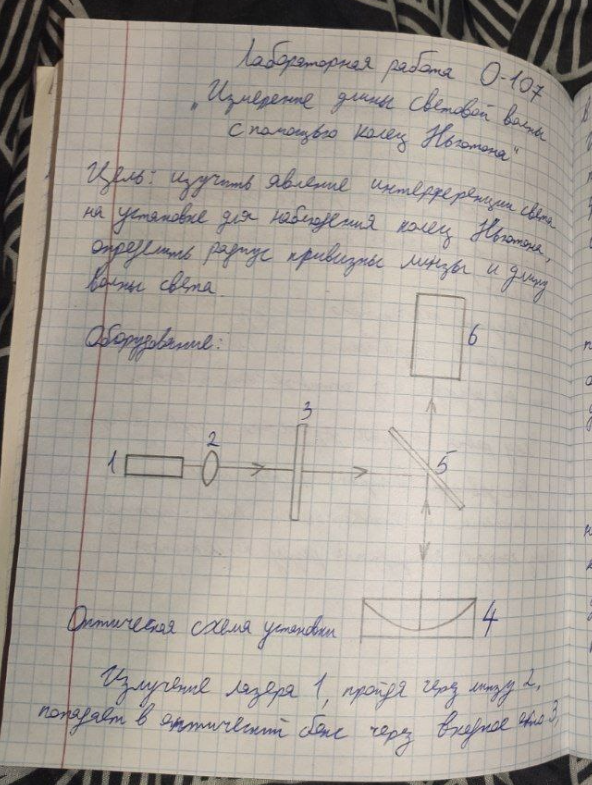 Лабораторная работа О-107
„Измерение длины световой волны
с помощью колец Ньютона"
Цель: изучить явление интерференции света
на установке для наблюдения колец Ньютона,
определить радиус кривизны линзы и длину
волны света
Оборудование:
6
3
1 2
5
4
Оптическая схема установки
Излучение лазера 1, пройдя через линзу 2,
попадает в оптический бокс через входное окно 3,